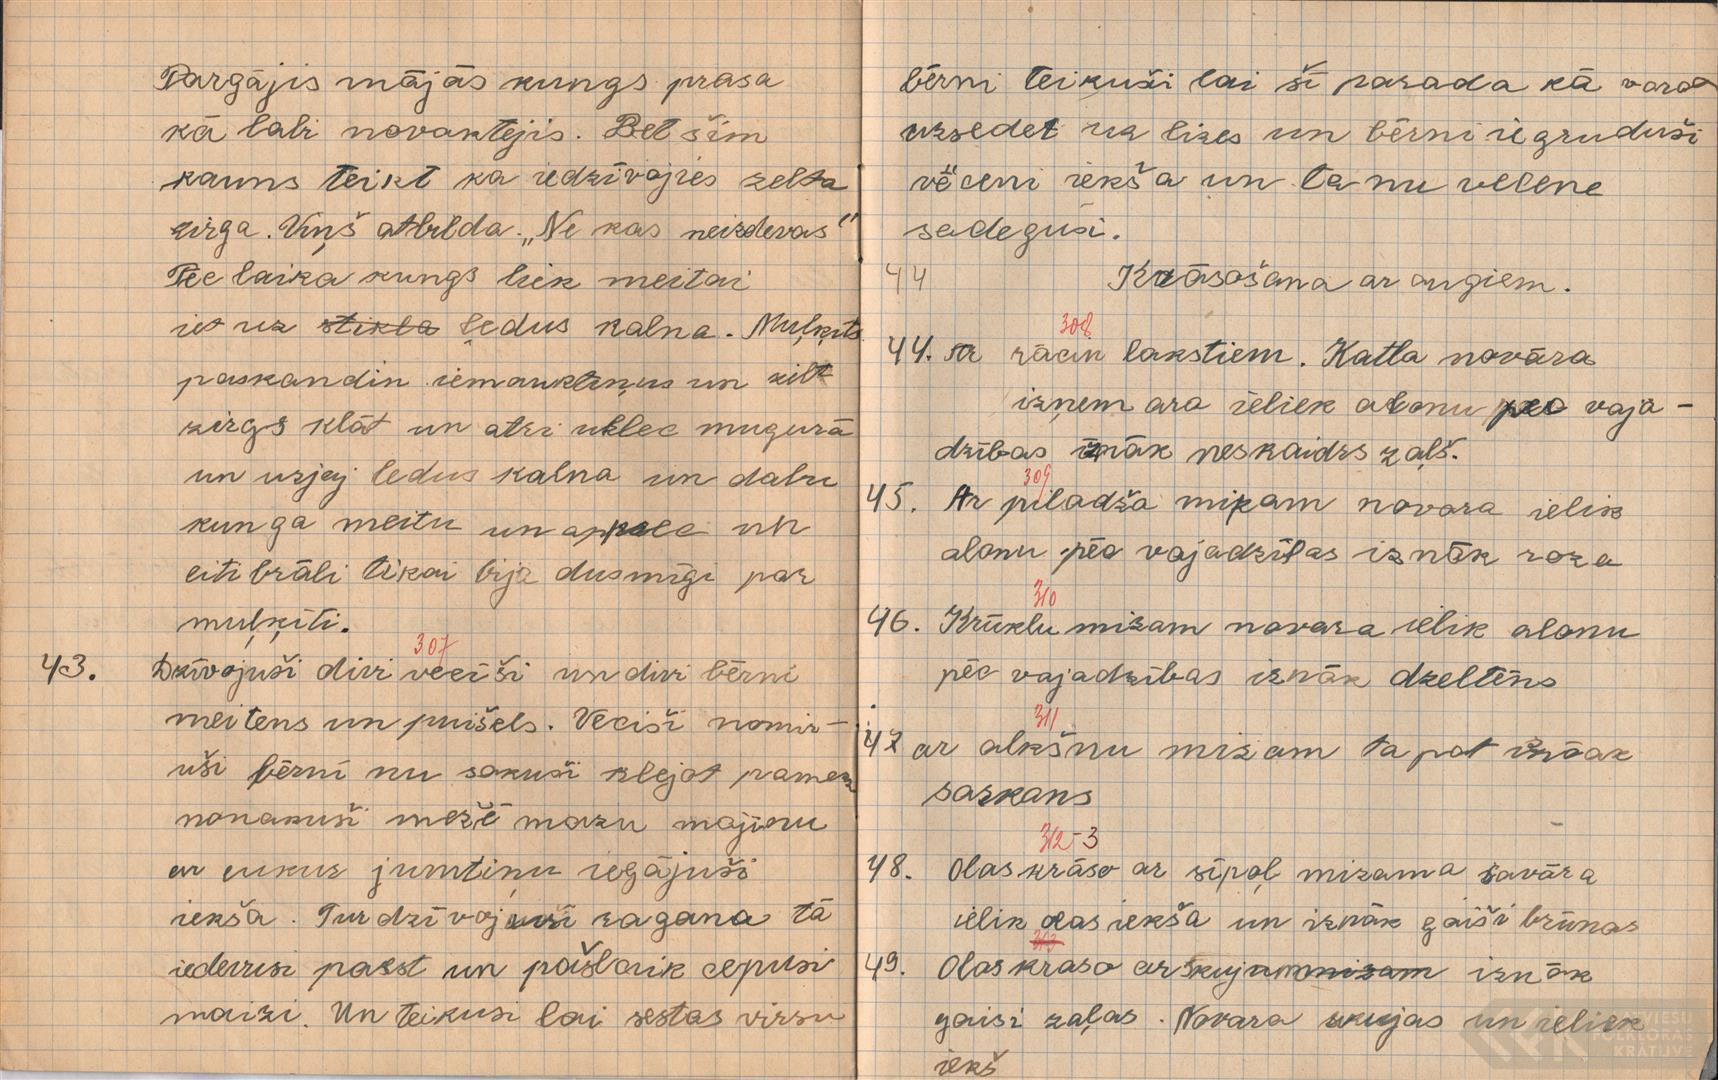 Pārgājis mājās kungs prasa
kā labi novaktejis. Bet šim
kauns teikt ka iedzīvojies zelta
zirga. Viņš atbilda. „Ne kas neizdevas"
Pēc laika kungs liek meitai
iet uz stikla ļedus kalna. Muļķits
paskandin iemauktiņus un zilt
zirgs klāt un atri uklec mugurā
un uzjaj ledus kalna un dabu
kunga meitu un un
citi brāli tikai bija dusmīgi par
muļķiti.
307
43. Dzīvojuši divi veciši un divi bērni
meitens un puišels. Veciši nomir-
uši bērni nu sakuši klejot pa mežu
nonakuši mežē mazu majinu
ar cukur jumtiņu iegājuši
iekša. Tur dzīvojusi ragana tā
iedevusi paēst un pašlaik cepusi
maizi. Un teikusi lai sēstas virsu
bērni teikuši lai šī parada kā varot
uzsedet uz lizes un bērni iegruduši
vēceni iekšā un ta nu velene
sadegusi.
44 Krāsošana ar augiem.
308
44. Ar rācin lakstiem. Katla novāra
izņem ara ieliek alonu pec vaja-
dzības iznāk neskaidrs zaļš.
309
45. Ar pīladža mizam novara ielik
alonu pēc vajadzības iznāk roza
310
46. Krūklu mizam novara ielik alonu
pēc vajadzības iznāk dzeltēns
311
47 ar alkšnu mizam ta pat iznāk
sarkans
312-3
48. Olas krāso ar sīpoļ mizama savāra
ielik olas iekša un iznāk gaiši brūnas
313
49. Olas kraso ar skujam mizam iznāk
gaisi zaļas. Novara skujas un ieliek
iekš
LATVIEŠU
FOLKLORAS
KRĀTUVE